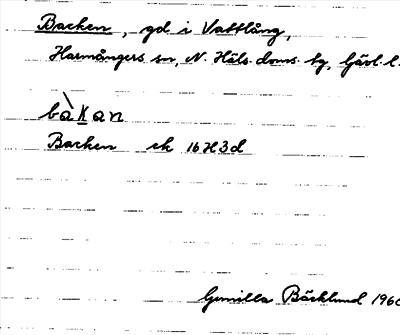 Backen, gd i Vattlång,
Harmångers sn, N. Häls. doms. tg, Gävl. l.
bàkan
Backen ek 16H3d
Gunilla Bäcklund 1960